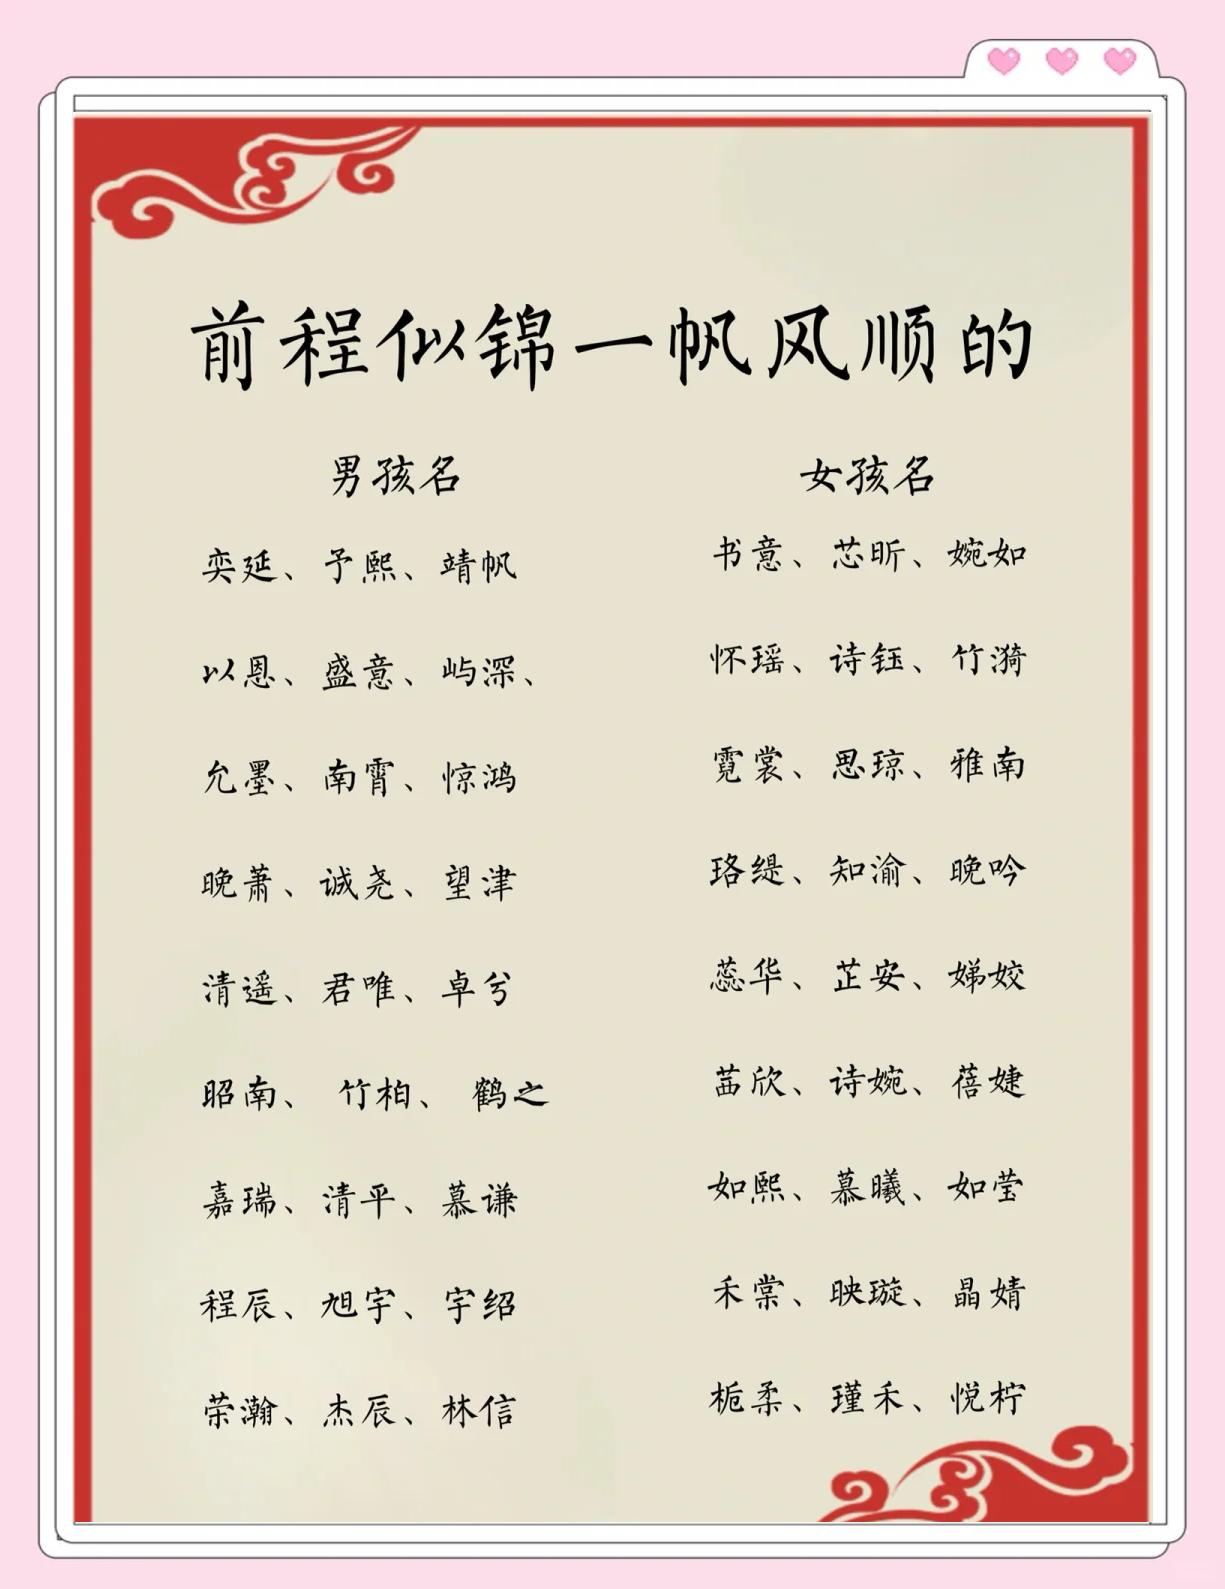 前程似锦一帆风顺的
男孩名
奕延、予熙、靖帆
以恩、盛意、屿深、
允墨、南霄、惊鸿
晚萧、诚尧、望津
清遥、君唯、卓兮
昭南、 竹柏、 鹤之
嘉瑞、清平、慕谦
程辰、旭宇、宇绍
荣瀚、杰辰、林信
女孩名
书意、芯昕、婉如
怀瑶、诗钰、竹漪
霓裳、思琼、雅南
珞缇、知渝、晚吟
蕊华、芷安、娣姣
茁欣、诗婉、蓓婕
如熙、慕曦、如莹
禾棠、映璇、晶婧
栀柔、瑾禾、悦柠